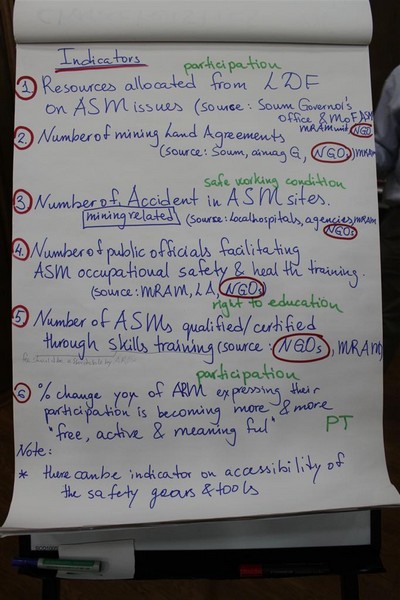 Indicators
participation
1. Resources allocated from LDF
on ASM issues (source: Soum Governor's
office & MoF, ASM
MRAM unit, NGO
2. Number of mining Land Agreements
(source: Soum, aimag G, NGOs) MRAM
safe working condition
3. Number of Accident in ASM sites.
mining related (source: local hospitals, agencies, MRAM
NGOs
4. Number of public officials facilitating
ASM occupational safety & health training.
(source: MRAM, LA, NGOs)
right to education
5 Number of ASMs qualified/certified
through skills training (source: NGOs, MRAM)
participation
6 % change yoy of ASM expressing their
participation is becoming more & more
"free, active & meaning ful"
PT
Note:
* there canbe indicator on accessibility of
the safety gears & tools